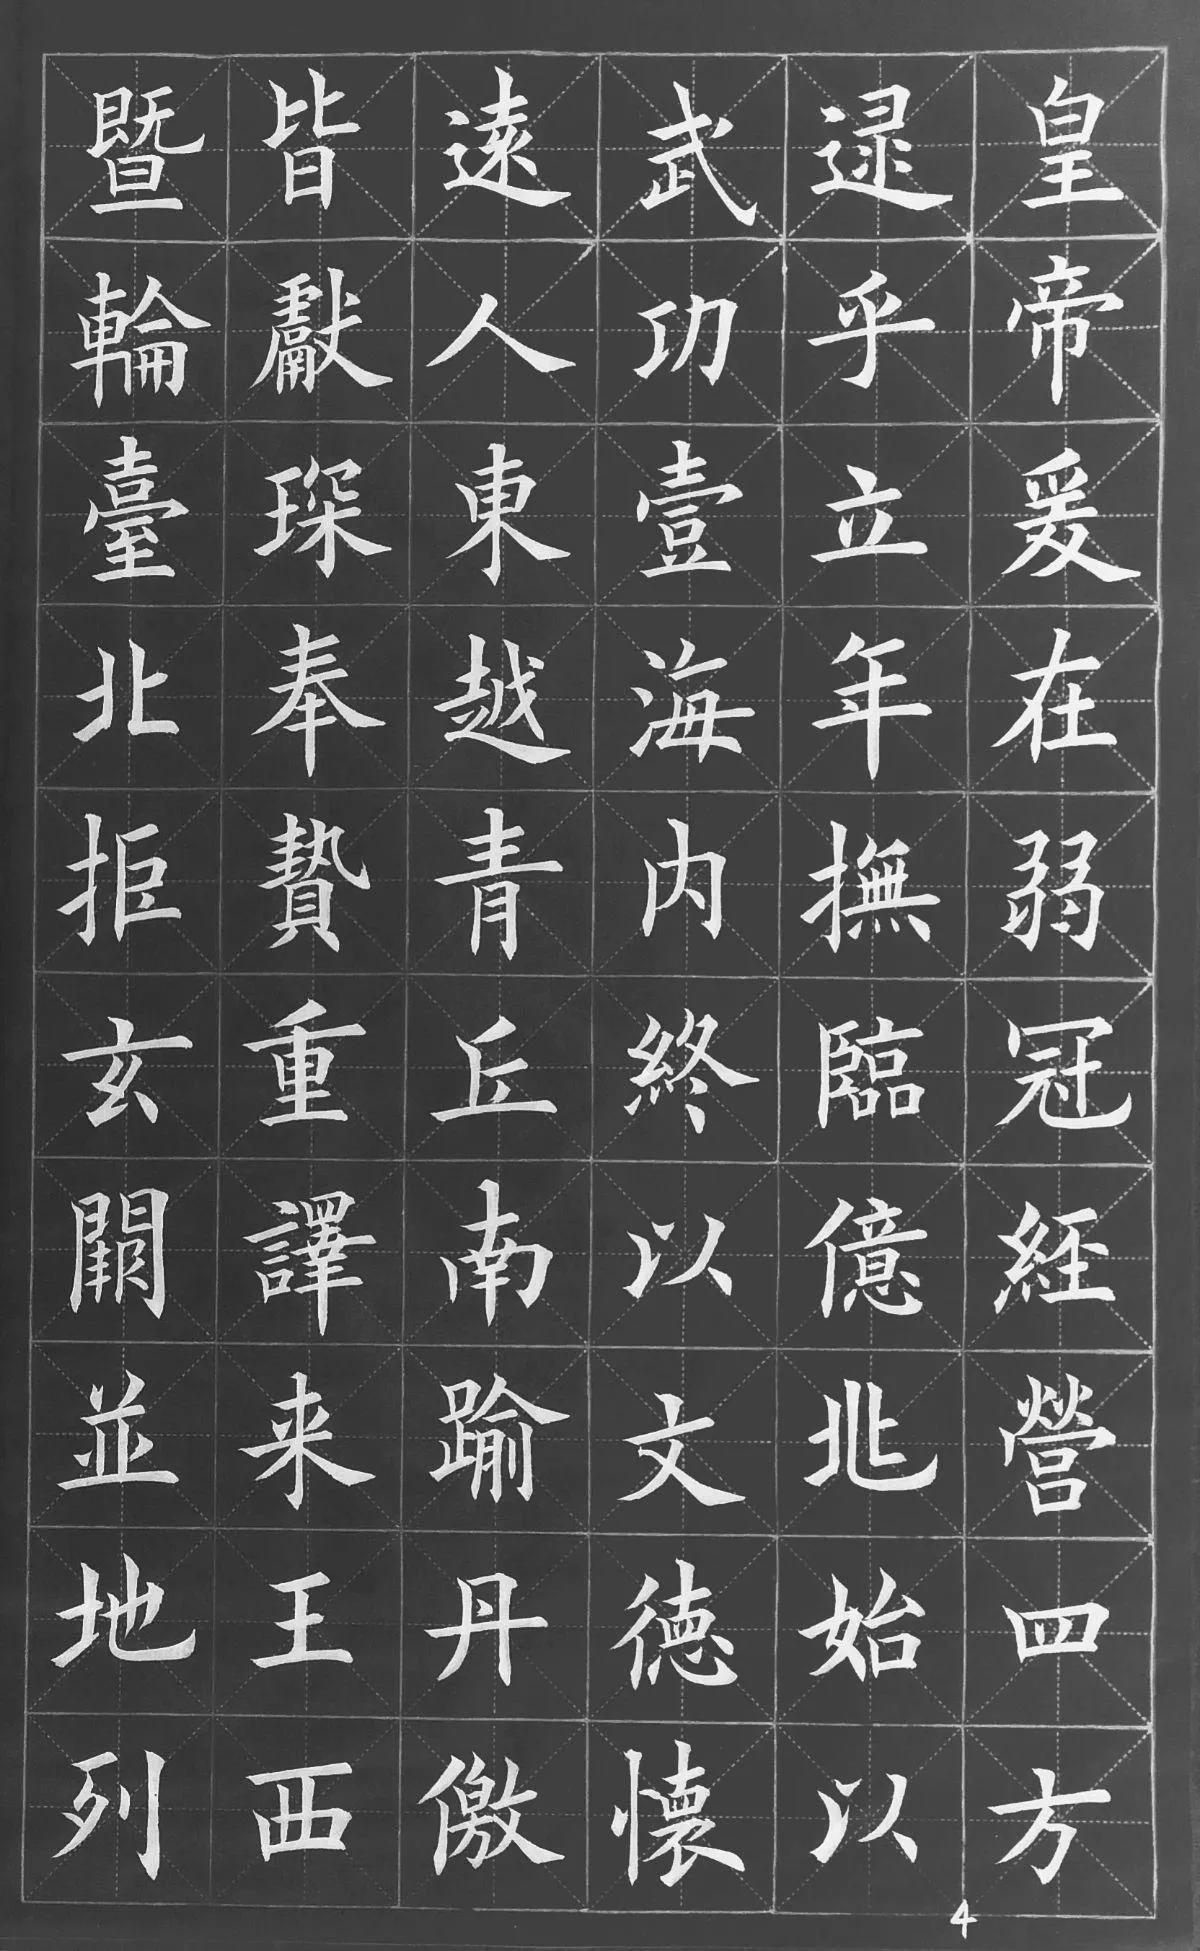 皇帝爰在弱冠経營四方
逯乎立年撫臨億兆始以
武功壹海内終以文德懷
逺人東越青丘南踰丹儌
皆獻琛奉贄重譯来王西
暨輪臺北拒玄闕並地列
4